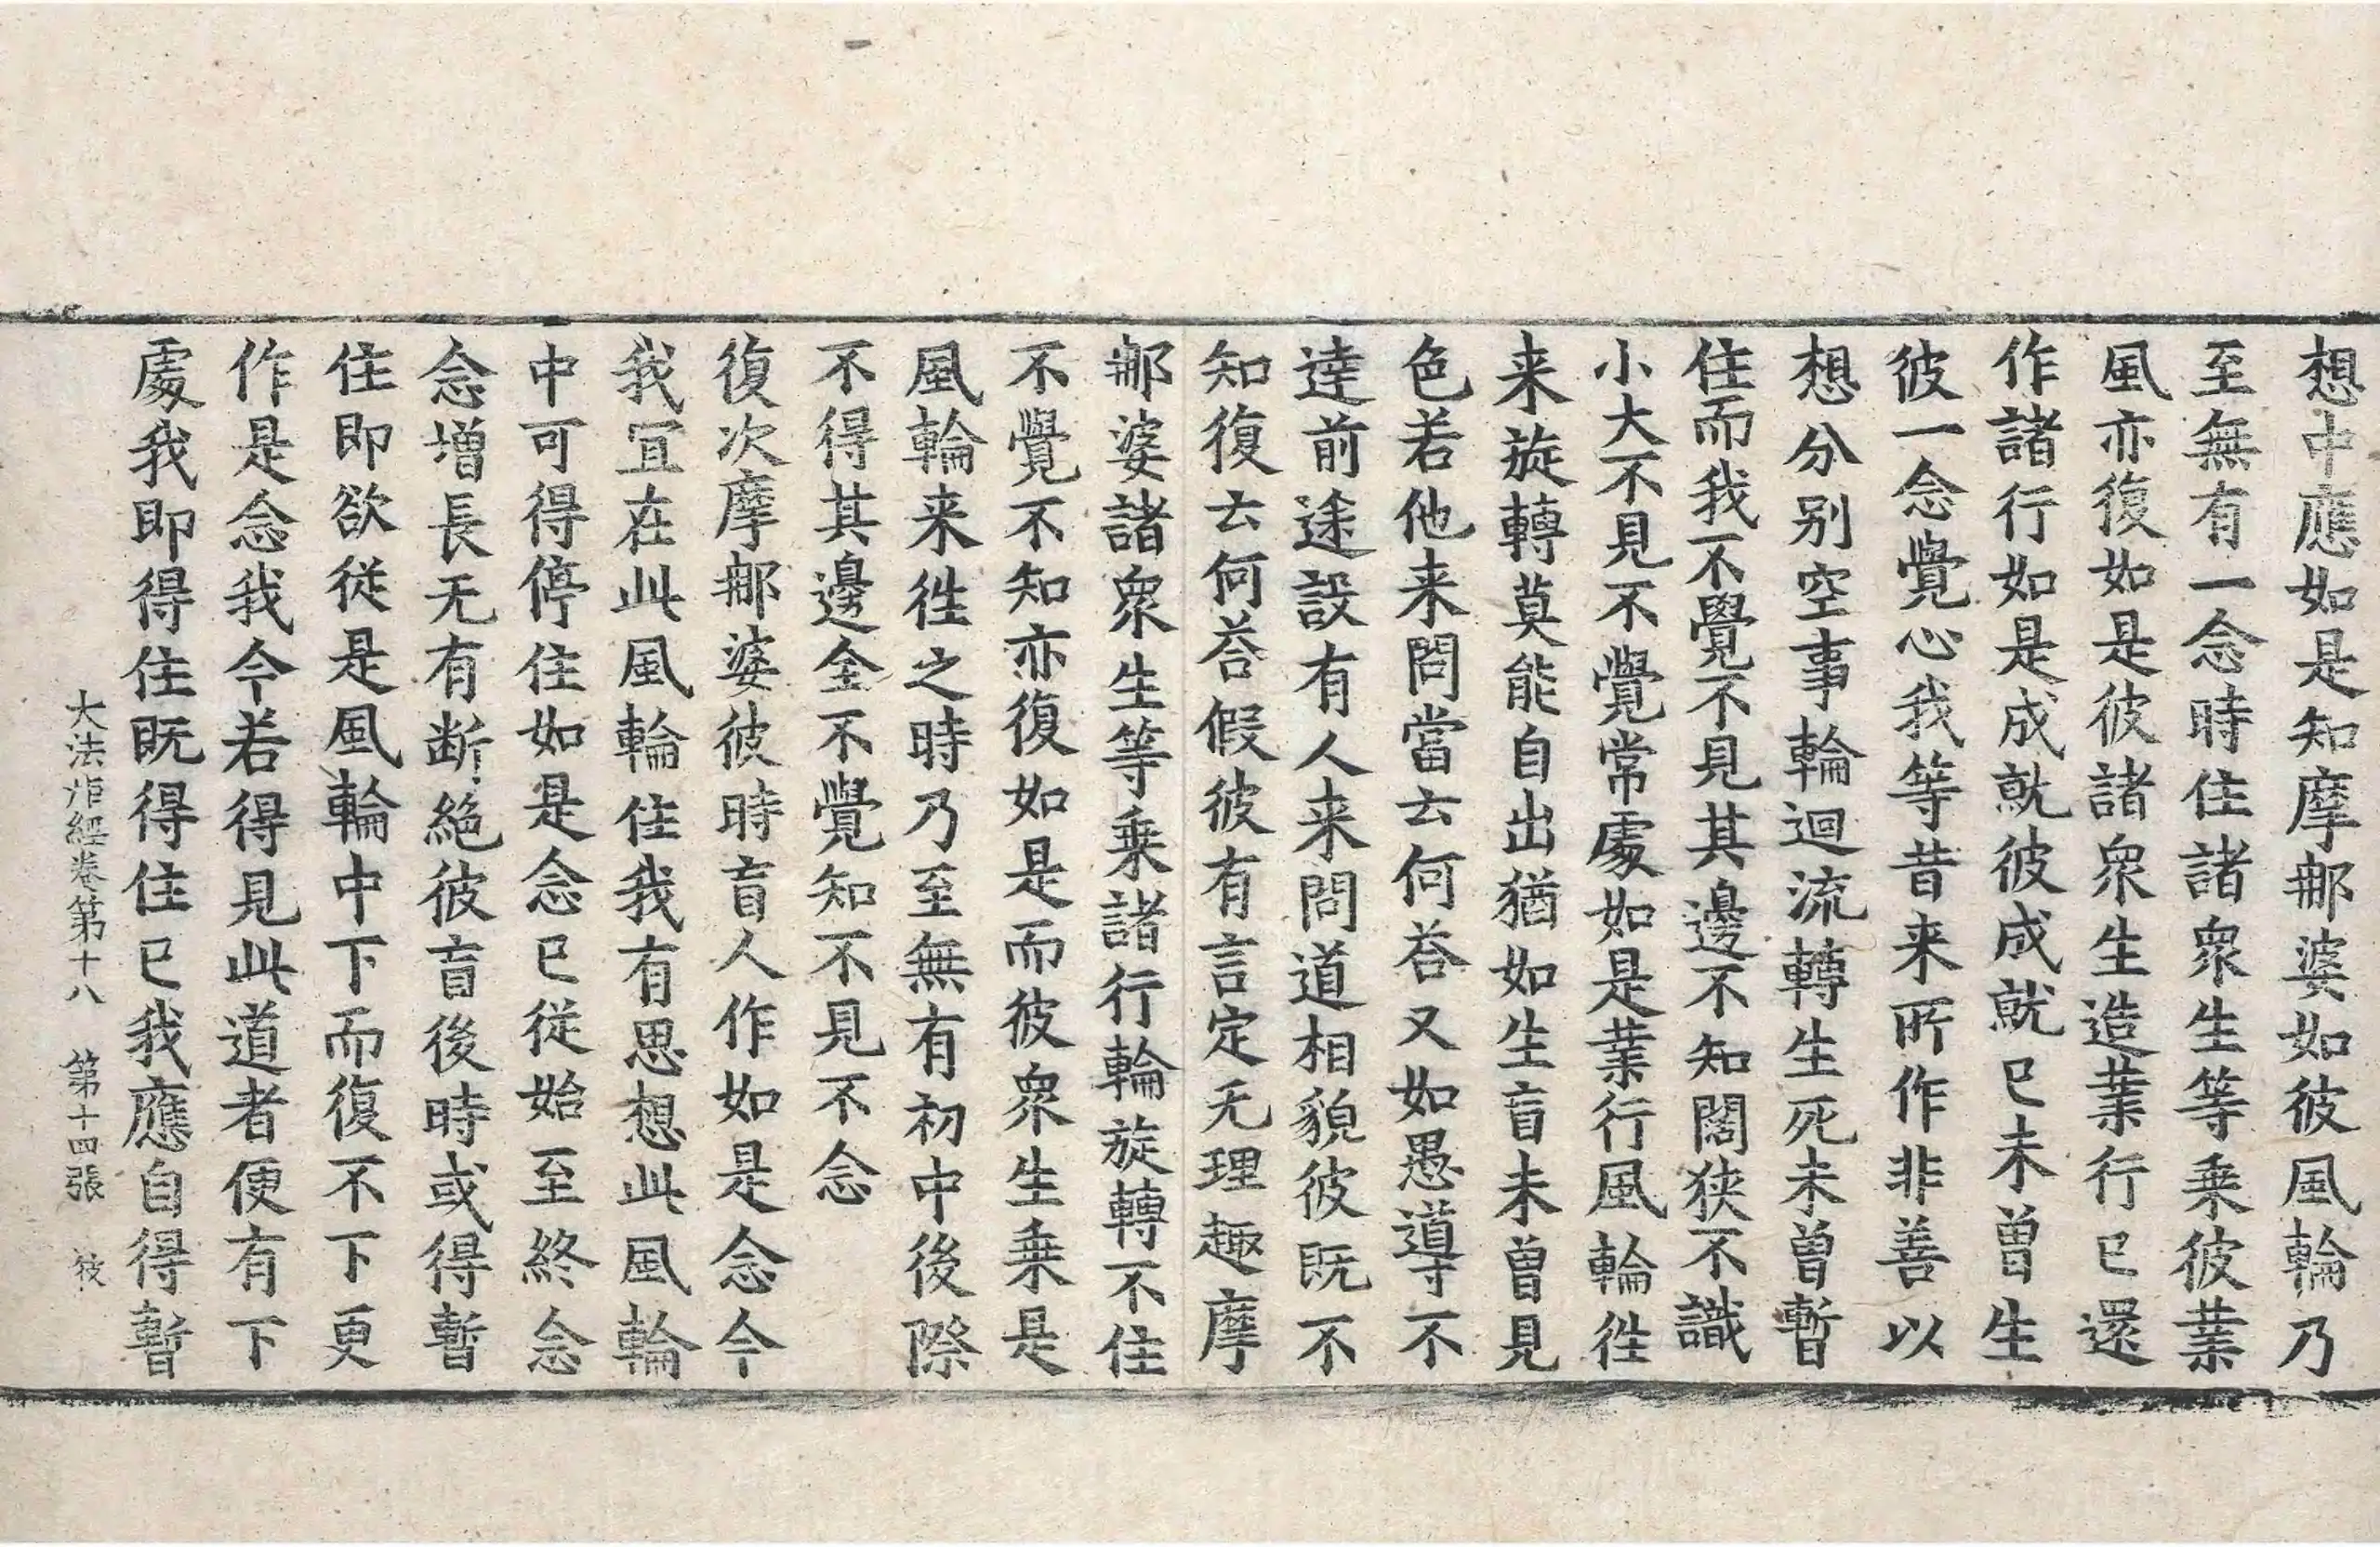 想中應如是知摩𨚗婆如彼風輪乃
至無有一念時住諸衆生等乗彼業
風亦復如是彼諸衆生造業行已還
作諸行如是成就彼成就已未曽生
彼一念覺心我等昔来所作非善以
想分别空事輪迴流轉生死未曽暫
住而我不覺不見其邊不知闊狭不識
小大不見不覺常處如是業行風輪徃
来旋轉莫能自出猶如生盲未曽見
色若他来問當云何荅又如愚導不
達前途設有人来問道相貌彼既不
知復云何荅假彼有言定无理趣摩
𨚗婆諸衆生等乗諸行輪旋轉不住
不覺不知亦復如是而彼衆生乗是
風輪来徃之時乃至無有初中後際
不得其邊全不覺知不見不念
復次摩𨚗婆彼時盲人作如是念今
我冝在此風輪住我有思想此風輪
中可得停住如是念已従始至終念
念增長无有断絶彼盲後時或得暫
住即欲従是風輪中下而復不下更
作是念我今若得見此道者便有下
處我即得住既得住已我應自得暫
大法炬經卷第十八　第十四張　㚇